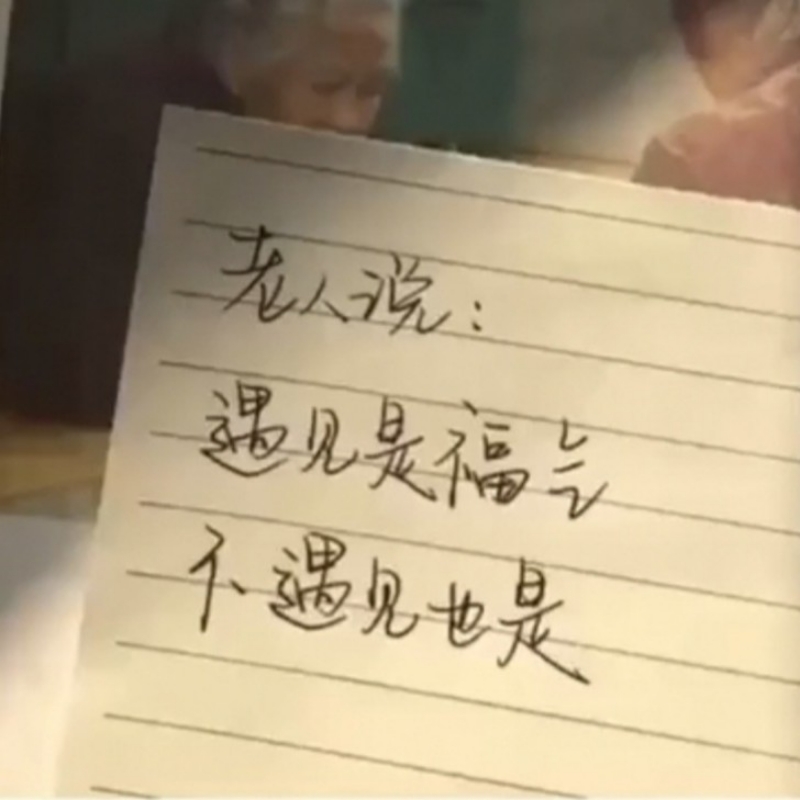 老人说：
遇见是福气
不遇见也是